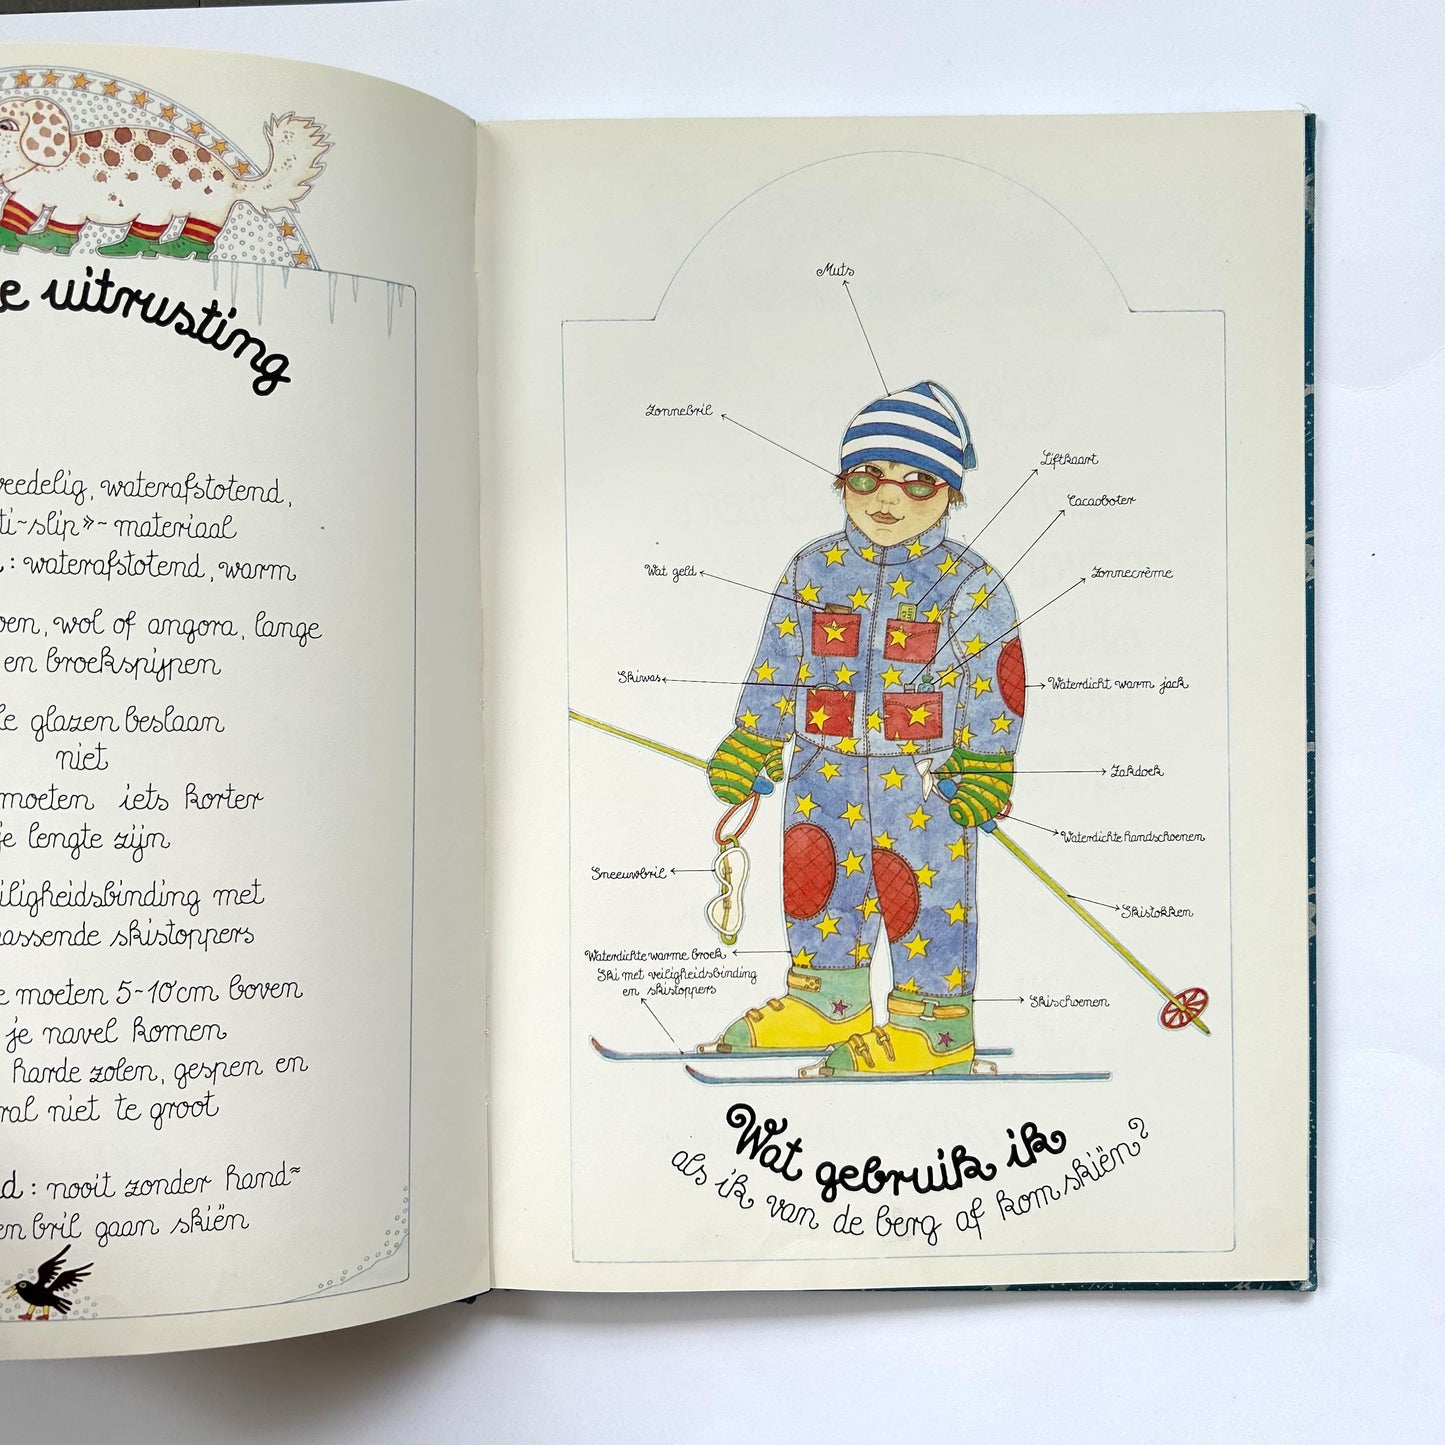 uitrusting
waterafstotend,
materiaal
: waterafstotend, warm
wol of angora, lange
en broekspijpen
glazen beslaan
niet
moeten iets korter
je lengte zijn
met
skistoppers
moeten 5-10cm boven
je navel komen
harde zolen, gespen en
niet te groot
: nooit zonder hand=
bril gaan skiën
Muts
Zonnebril
Liftkaart
Cacaoboter
Wat geld
Zonnecrème
Skiwas
Waterdicht warm jack
Zakdoek
Waterdichte handschoenen
Sneeuwbril
Skistokken
Waterdichte warme broek
Ski met veiligheidsbinding
en skistoppers
Skischoenen
Wat gebruik ik
als ik van de berg af kom skiën?